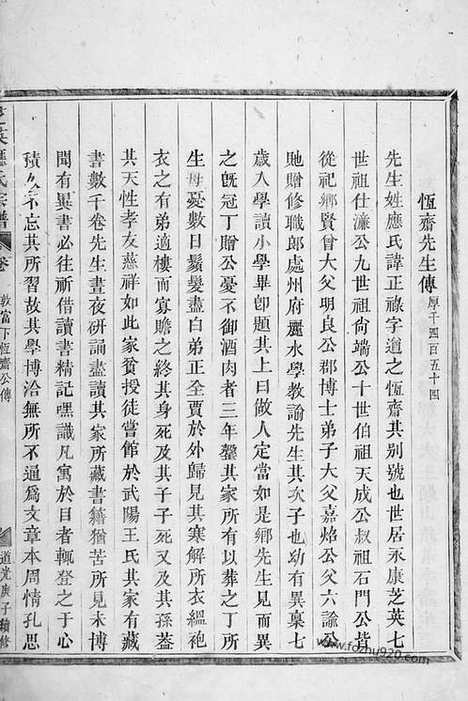 恆齋先生傳 厚千四百五十四
先生姓應氏諱正祿字道之恆齋其别號也世居永康芝英七
世祖仕濂公九世祖尚端公十世伯祖天成公叔祖石門公皆
從祀鄉賢曾大父明良公郡博士弟子大父嘉焰公父六諭公
貤贈修職郎處州府麗水學教諭先生其次子也幼有異稟七
歲入學讀小學畢其上曰做人定當如是鄉先生見而
之旣冠丁贈公憂不御酒肉者三年鏧其家所有以葬之丁所
生母憂數日鬚髮盡白弟正全賈於外歸見其寒解所衣縕袍
衣之有弟適樓而寡贍之終其身死及其子子死又及其孫葢
其天性孝友慈祥如此家貧授徒嘗館於武陽王氏其家有藏
書數千卷先生晝夜研誦盡讀其家所藏書籍猶苦所見未博
聞有異書必往祈借讀書精記嘿識凡寓於目者輒登之于心
積久不忘其所習故其學博洽無所不通爲文章本周情孔思
芝英應氏宗譜 卷 敦當下恆齋公傳 道光庚子續修
www.fozhu920.com